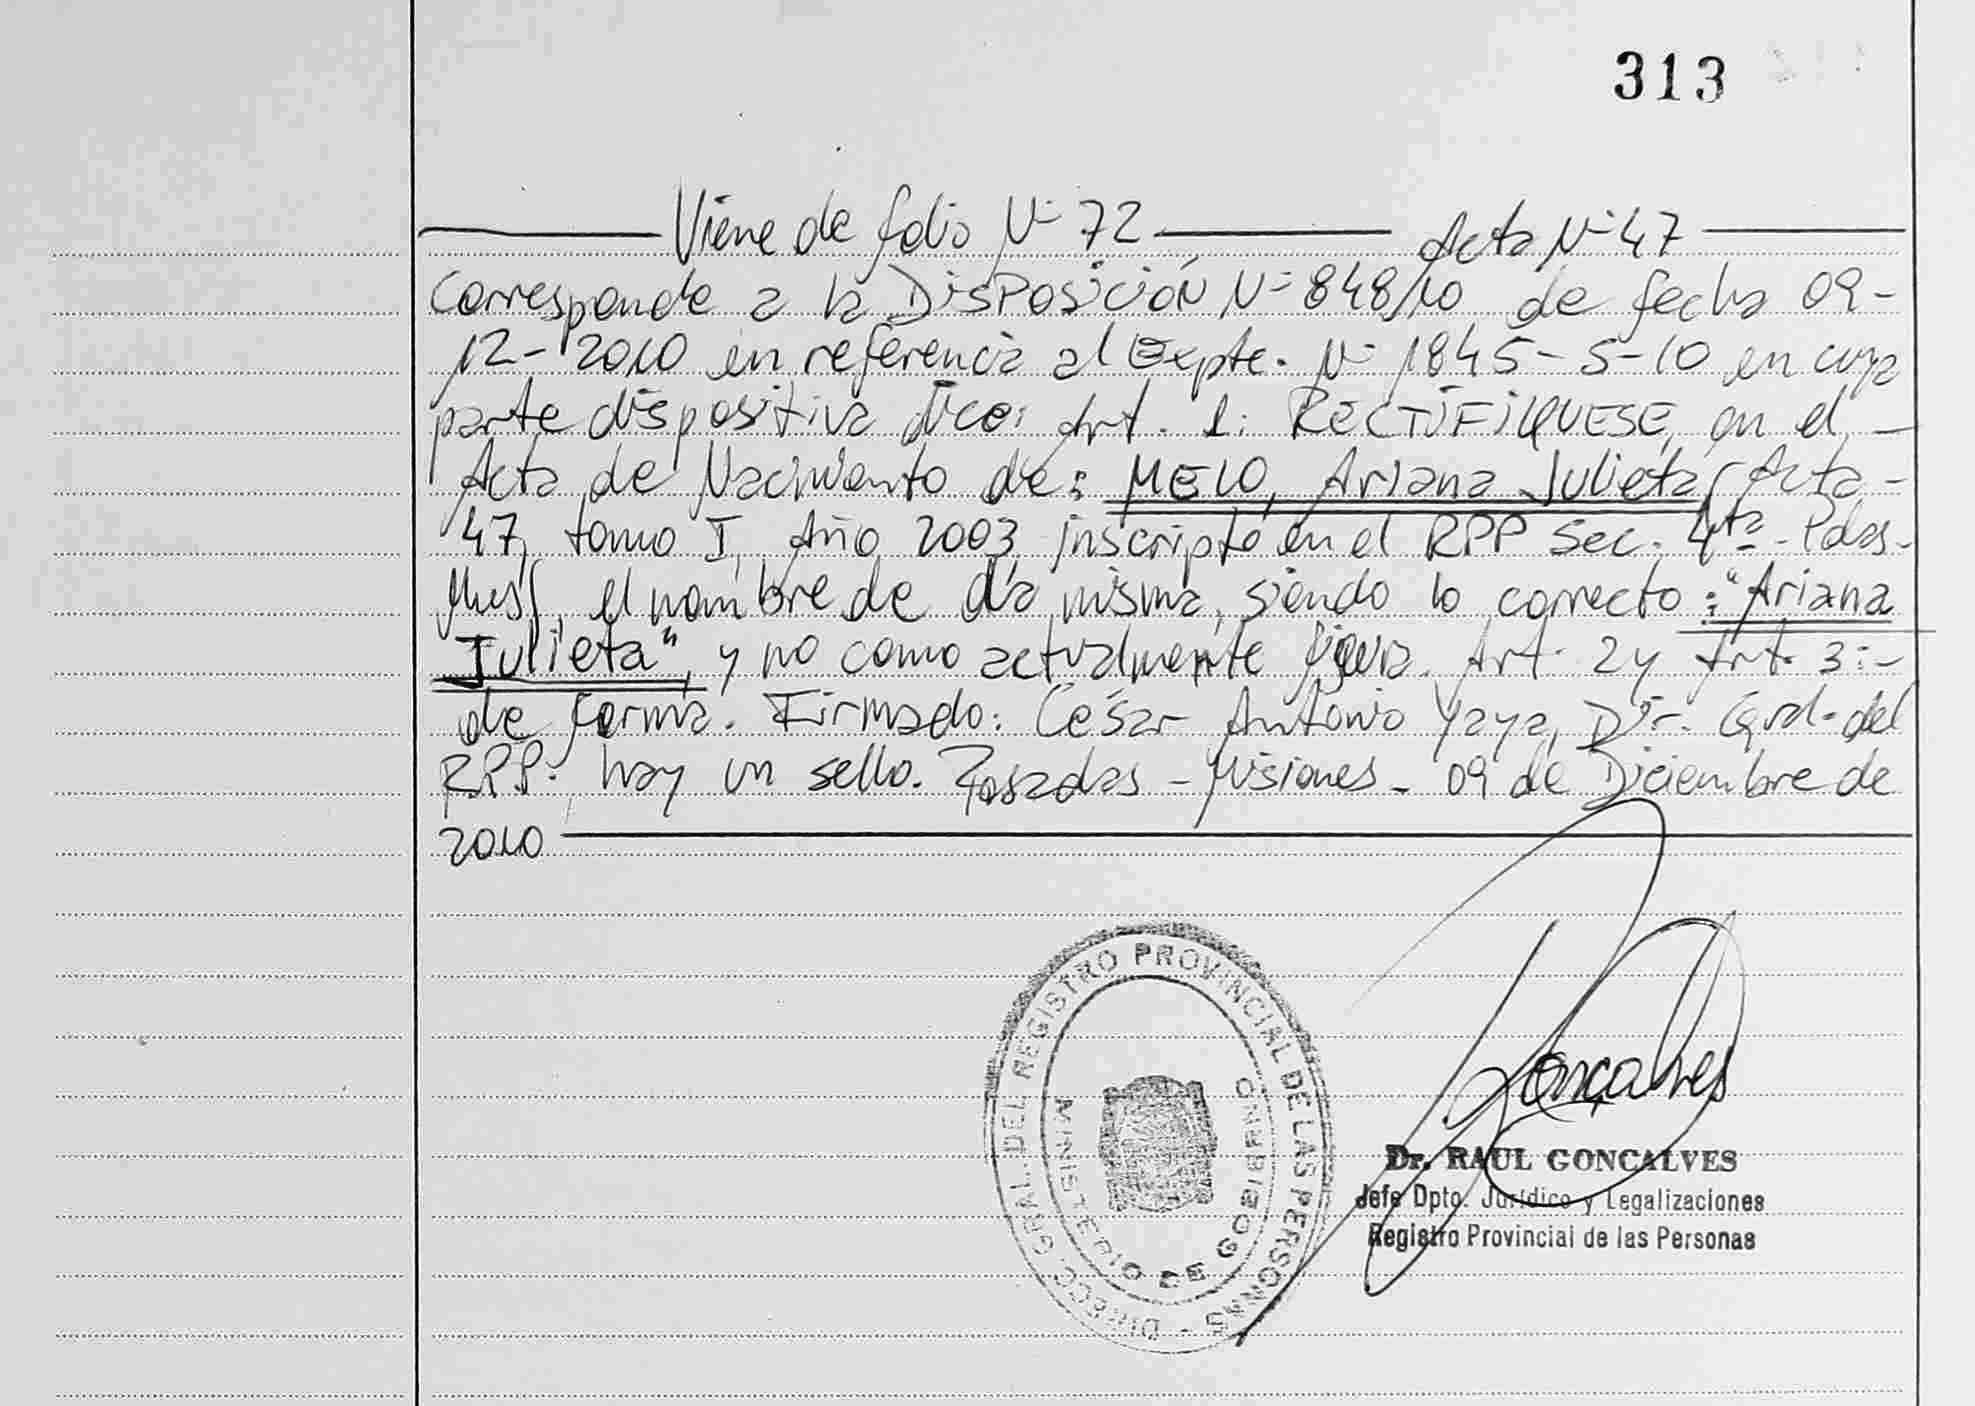 313
Viene de folio Nº 72 Acta Nº 47
Corresponde a la DISPOSICIÓN Nº 848/10 de fecha 09-
12-2010 en referencia al Expte. Nº 1845-5-10 en cuya
parte dispositiva dice: Art. 1: RECTIFIQUESE, en el -
Acta de Nacimiento de: MELO, Ariana Julieta, (Acta -
47, tomo I, Año 2003, inscripto en el RPP Sec. 4ta - Pdas-
Mnes), el nombre de la misma, siendo lo correcto: "Ariana
Julieta", y no como actualmente figura. Art. 2 y Art. 3: -
de forma. Firmado: César Antonio Yaya, Dir. Gral. del
RPP. hay un sello. Posadas - Misiones - 09 de Diciembre de
2010
DIRECC. GRAL. DEL REGISTRO PROVINCIAL DE LAS PERSONAS -
MINISTERIO DE GOBIERNO
Goncalves
Dr. RAUL GONCALVES
Jefe Dpto. Jurídico y Legalizaciones
Registro Provincial de las Personas